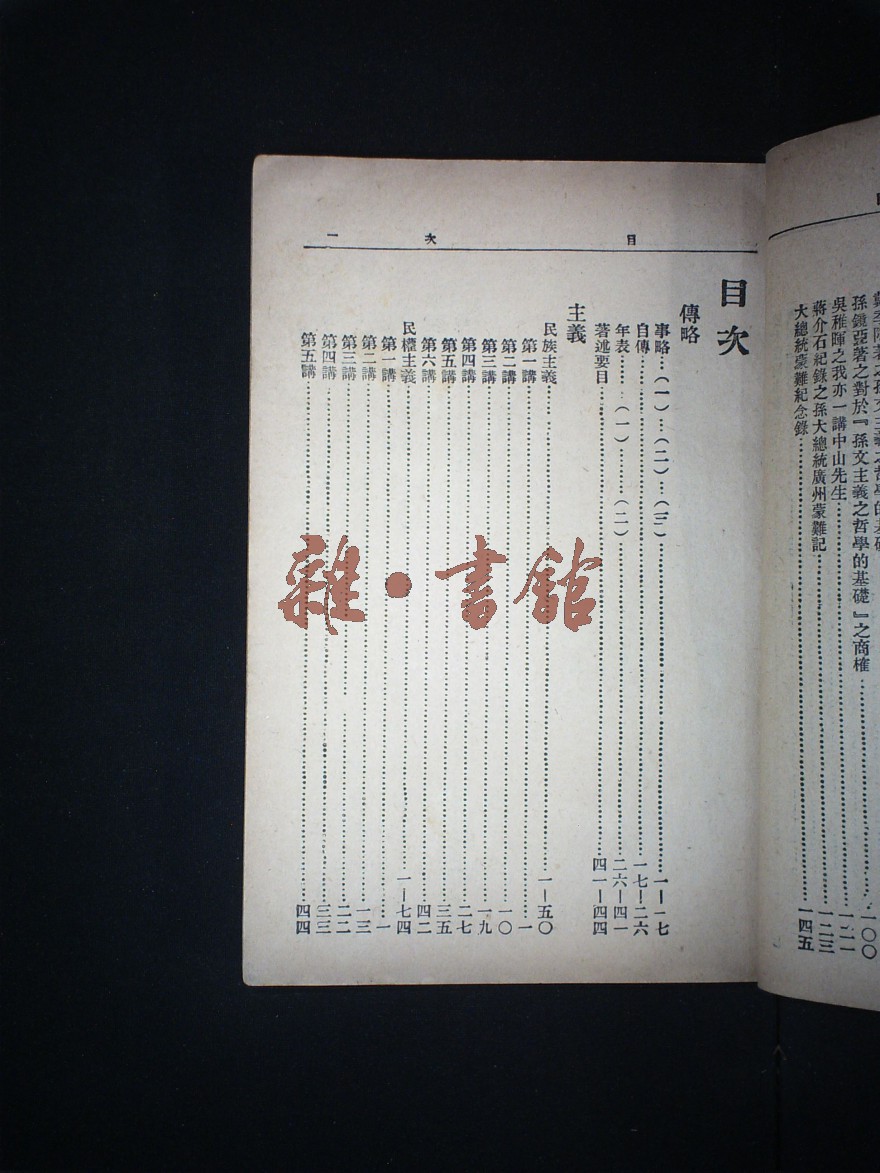 大總統蒙難紀念錄 一四五
蔣介石紀錄之孫大總統廣州蒙難記 一二三
吳稚暉之我亦一講中山先生 一二一
孫鏡亞著之對於『孫文主義之哲學的基礎』之商榷 一〇〇
目次 一
目次
傳略
事略…(一)…(二)…(三) 一—一七
自傳 一七—二六
年表……(一)………(二) 二六—四一
著述要目 四一—四四
主義
民族主義 一—五〇
第一講 一
第二講 一〇
第三講 一九
第四講 二七
第五講 三五
第六講 四二
民權主義 一—七四
第一講 一
第二講 一三
第三講 二二
第四講 三三
第五講 四四
雜·書館